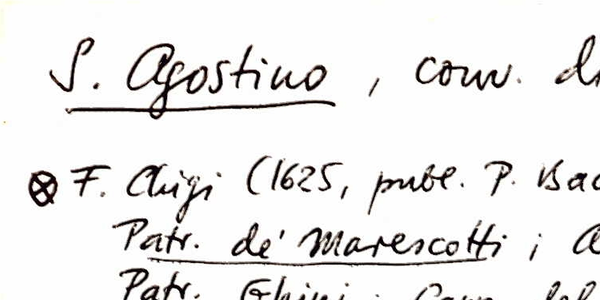 S. Agostino, conv. d
⊗ F. Chigi (1625, publ. P. Bac
Patr. de' Marescotti;
Patr. Ghini;